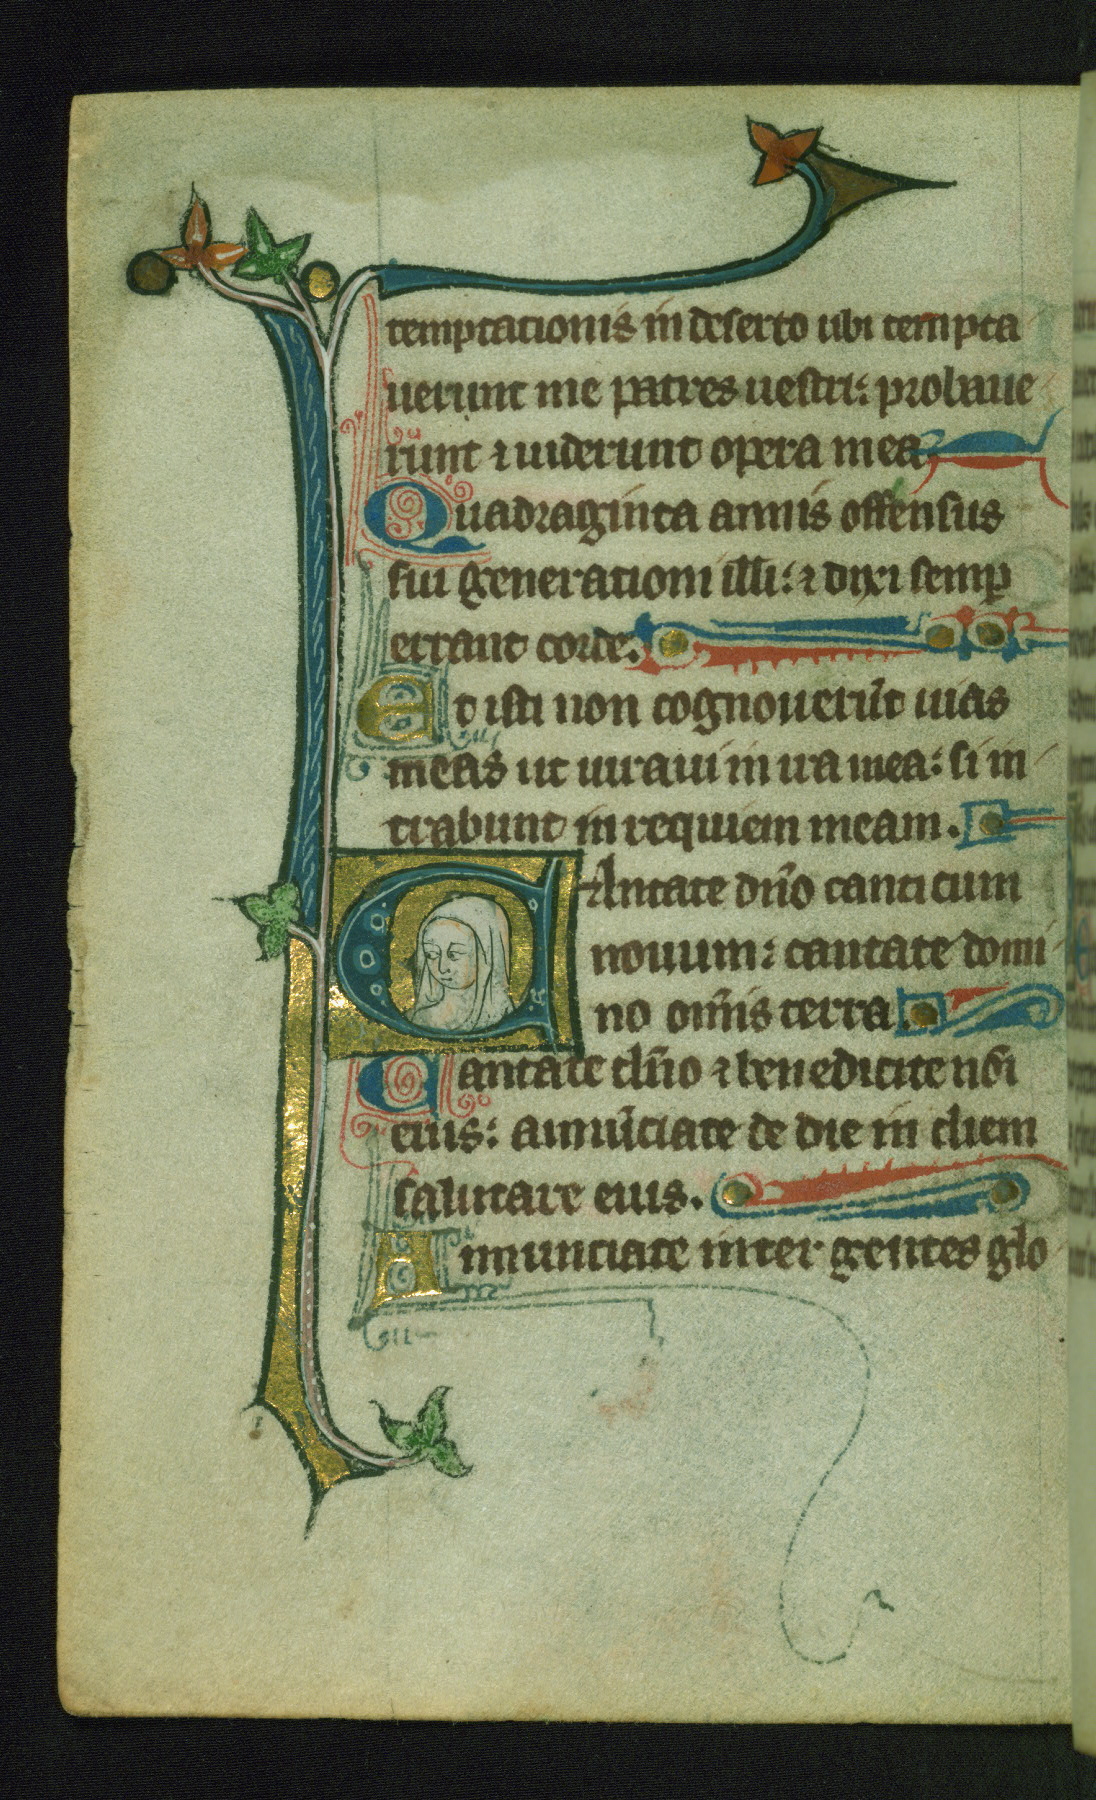 temptationis in deserto ubi tempta
uerunt me patres uestri: probaue
runt ⁊ uiderunt opera mea
Quadraginta annis offensus
fui generationi illi: ⁊ dixi semp
errant corde.
Et isti non cognouerūt uias
meas ut iuraui in ira mea: si in
trabunt in requiem meam.
CAntate dn̄o canticum
nouum: cantate domi
no om̄is terra.
Cantate dn̄o ⁊ benedicite nōi
eius: annūciate de die in diem
salutare eius.
Annunciate inter gentes glo